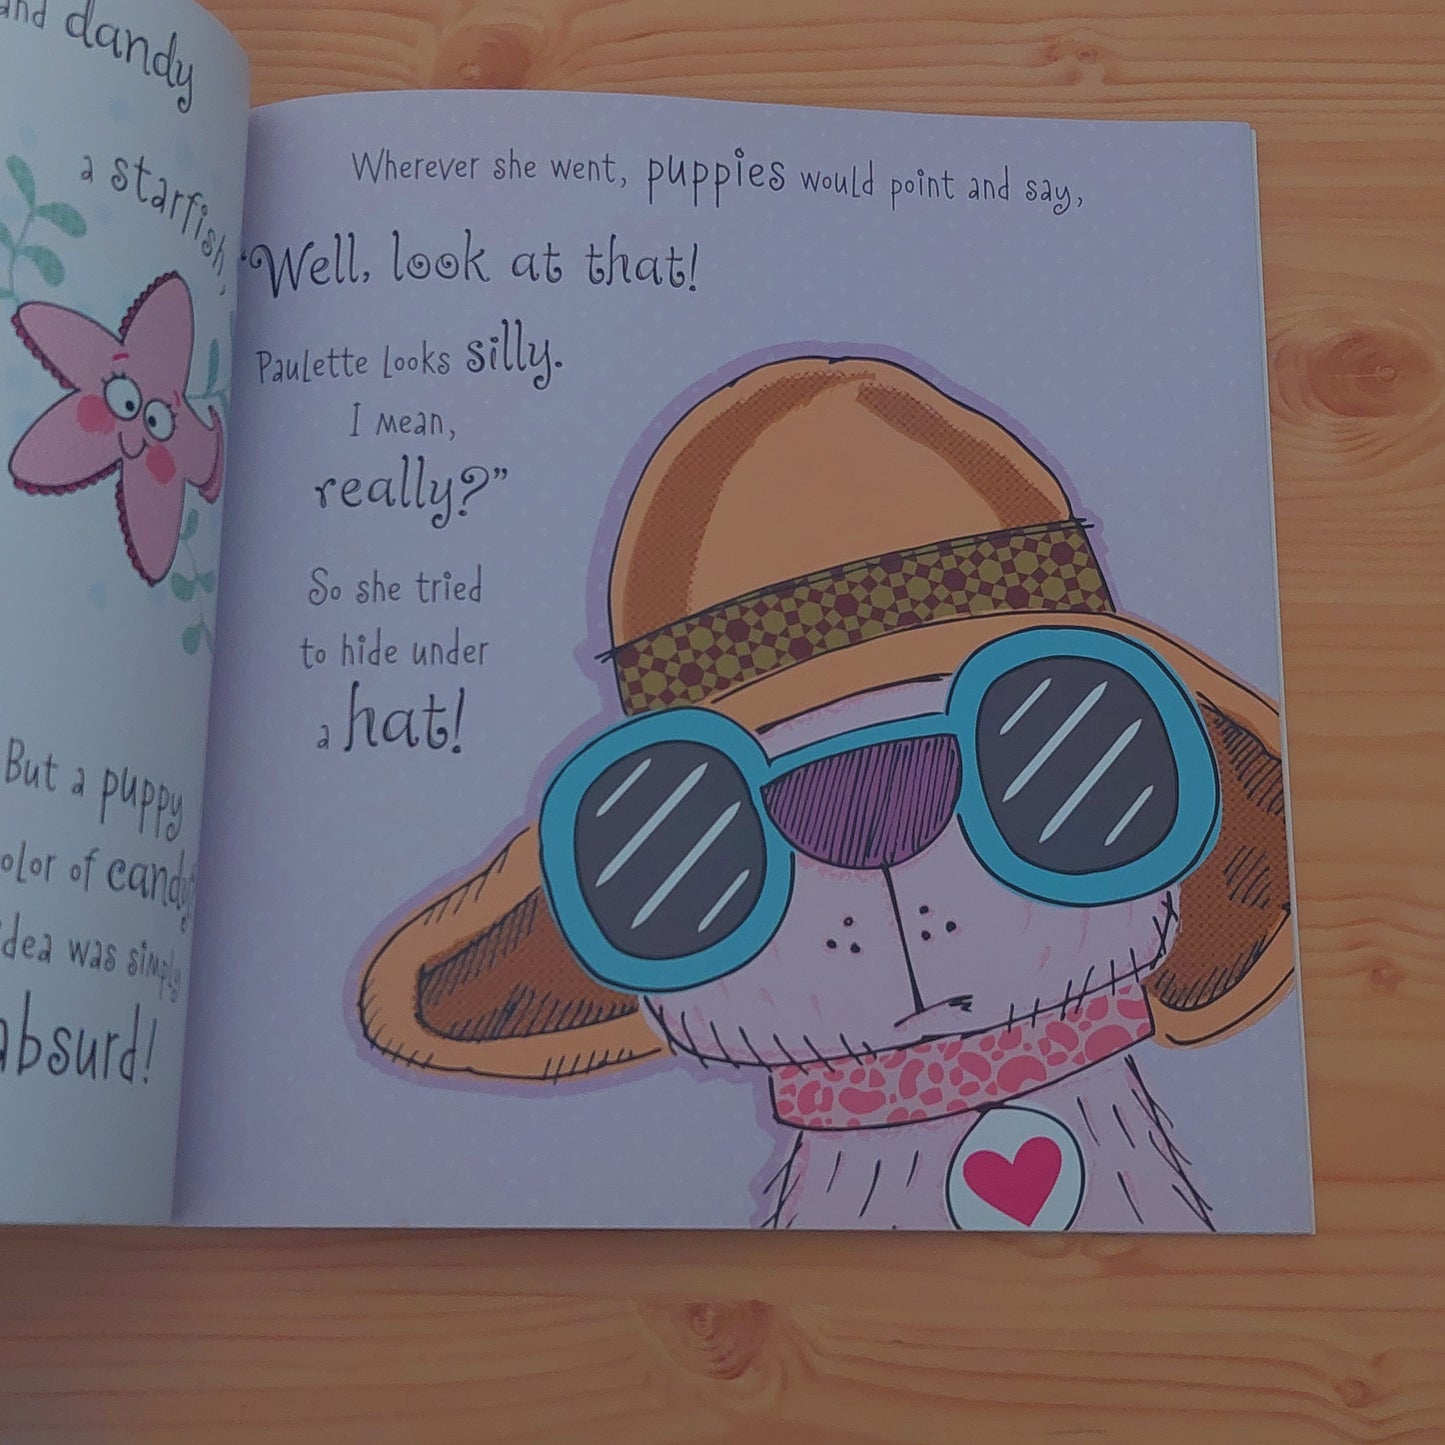 and dandy
a starfish,
But a puppy
of candy
idea was simply
absurd!
Wherever she went, puppies would point and say,
“Well, look at that!
Paulette looks silly.
I mean,
really?”
So she tried
to hide under
a hat!